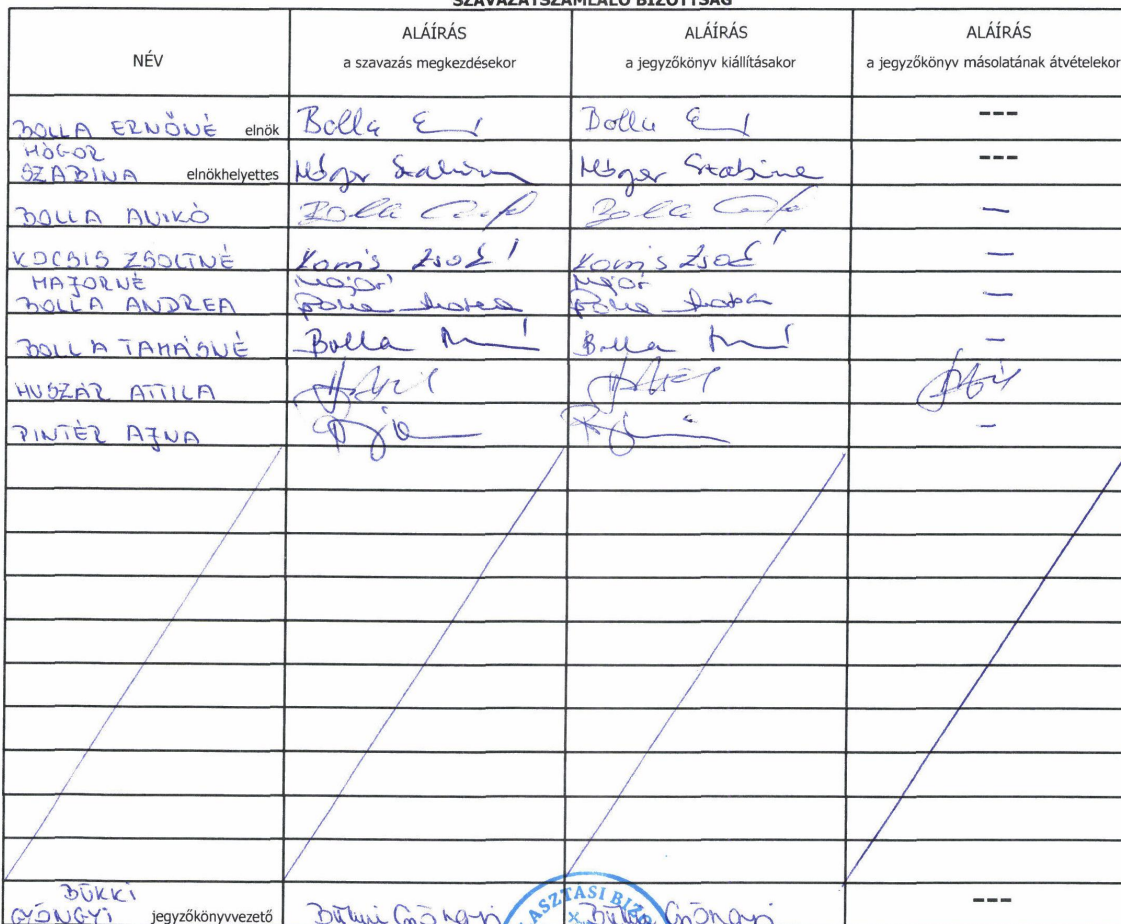 SZAVAZATSZÁMLÁLÓ BIZOTTSÁG
NÉV
ALÁÍRÁS
a szavazás megkezdésekor
ALÁÍRÁS
a jegyzőkönyv kiállításakor
ALÁÍRÁS
a jegyzőkönyv másolatának átvételekor
BOLLA ERNŐNÉ elnök Bolla E Bolla E ---
MÓGOR
SZABINA elnökhelyettes Mógor Szabina Mógor Szabina ---
BOLLA ANIKÓ Bolla Bolla —
KOCSIS ZSOLTNÉ Kocsis Zsolt Kocsis Zsolt —
MAJORNÉ Major Major
BOLLA ANDREA Bolla Andrea Bolla Andrea —
BOLLA TAMÁSNÉ Bolla Bolla —
HUSZÁR ATTILA
PINTÉR AJNA –
BÜKKI
GYÖNGYI jegyzőkönyvvezető Bükki Gyöngyi Bükki Gyöngyi ---